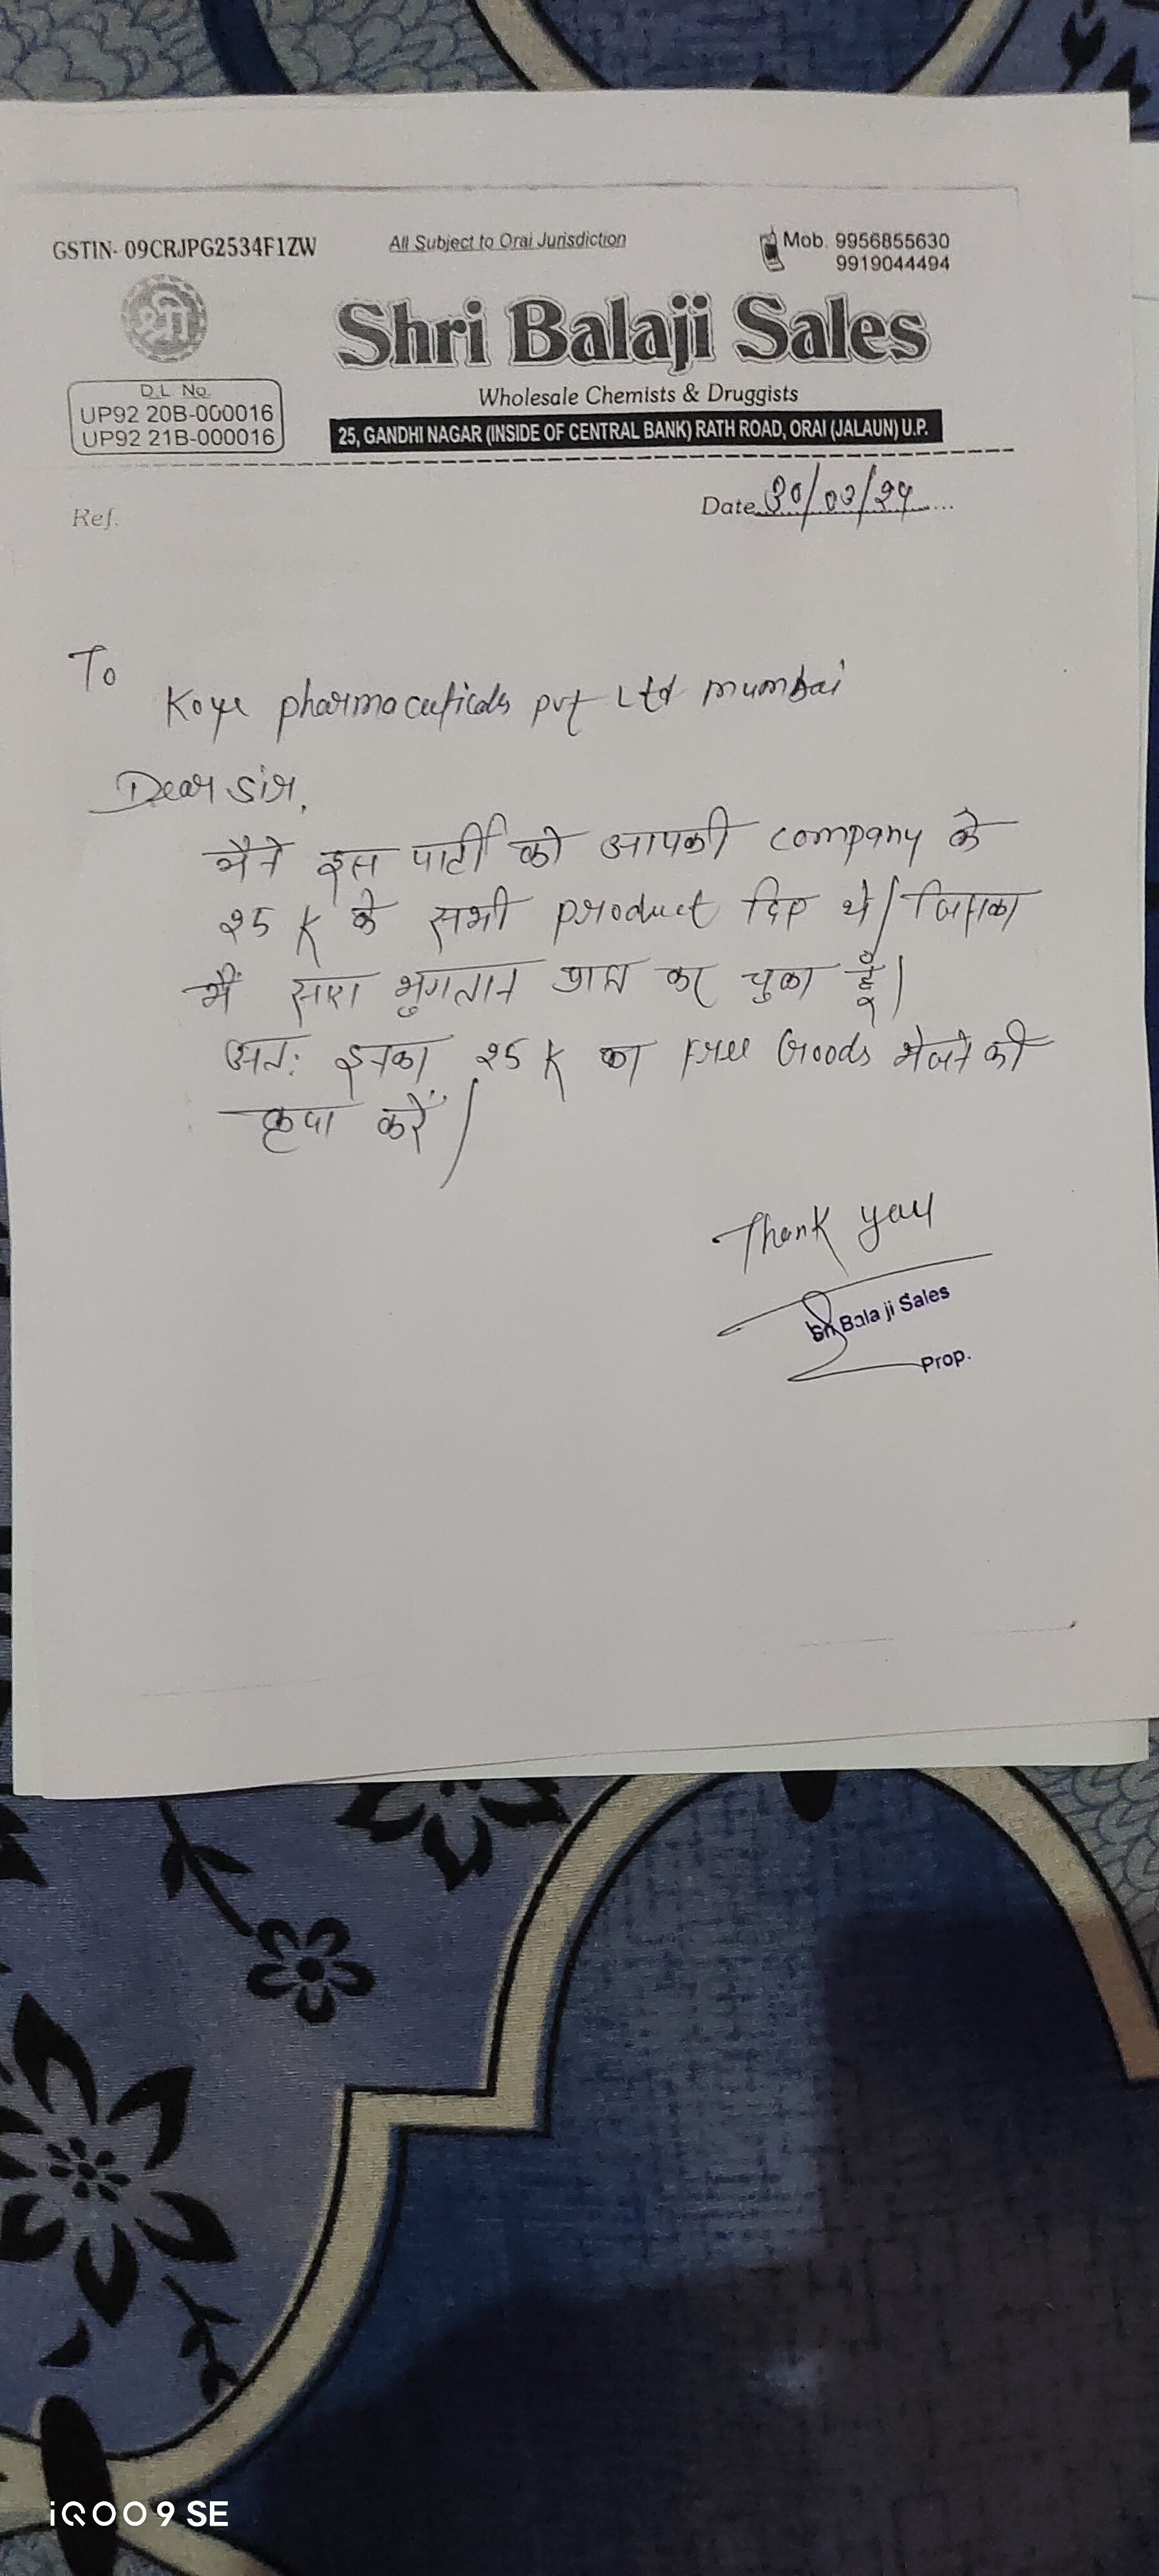 GSTIN- 09CRJPG2534F1ZW
All Subject to Orai Jurisdiction
Mob. 9956855630
9919044494
श्री
Shri Balaji Sales
D.L. No.
UP92 20B-000016
UP92 21B-000016
Wholesale Chemists & Druggists
25, GANDHI NAGAR (INSIDE OF CENTRAL BANK) RATH ROAD, ORAI (JALAUN) U.P.
Ref.
Date
To
Koye pharmaceuticals pvt Ltd mumbai
Dear Sir,
मैने इस पार्टी को आपकी company के
25 K के सभी product दिए थे। जिसका
मैं सारा भुगतान प्राप्त कर चुका हूँ।
अतः इनका 25 K का Free Goods भेजने की
कृपा करें।
Thank you
Sri Bala ji Sales
Prop.
iQOO 9 SE